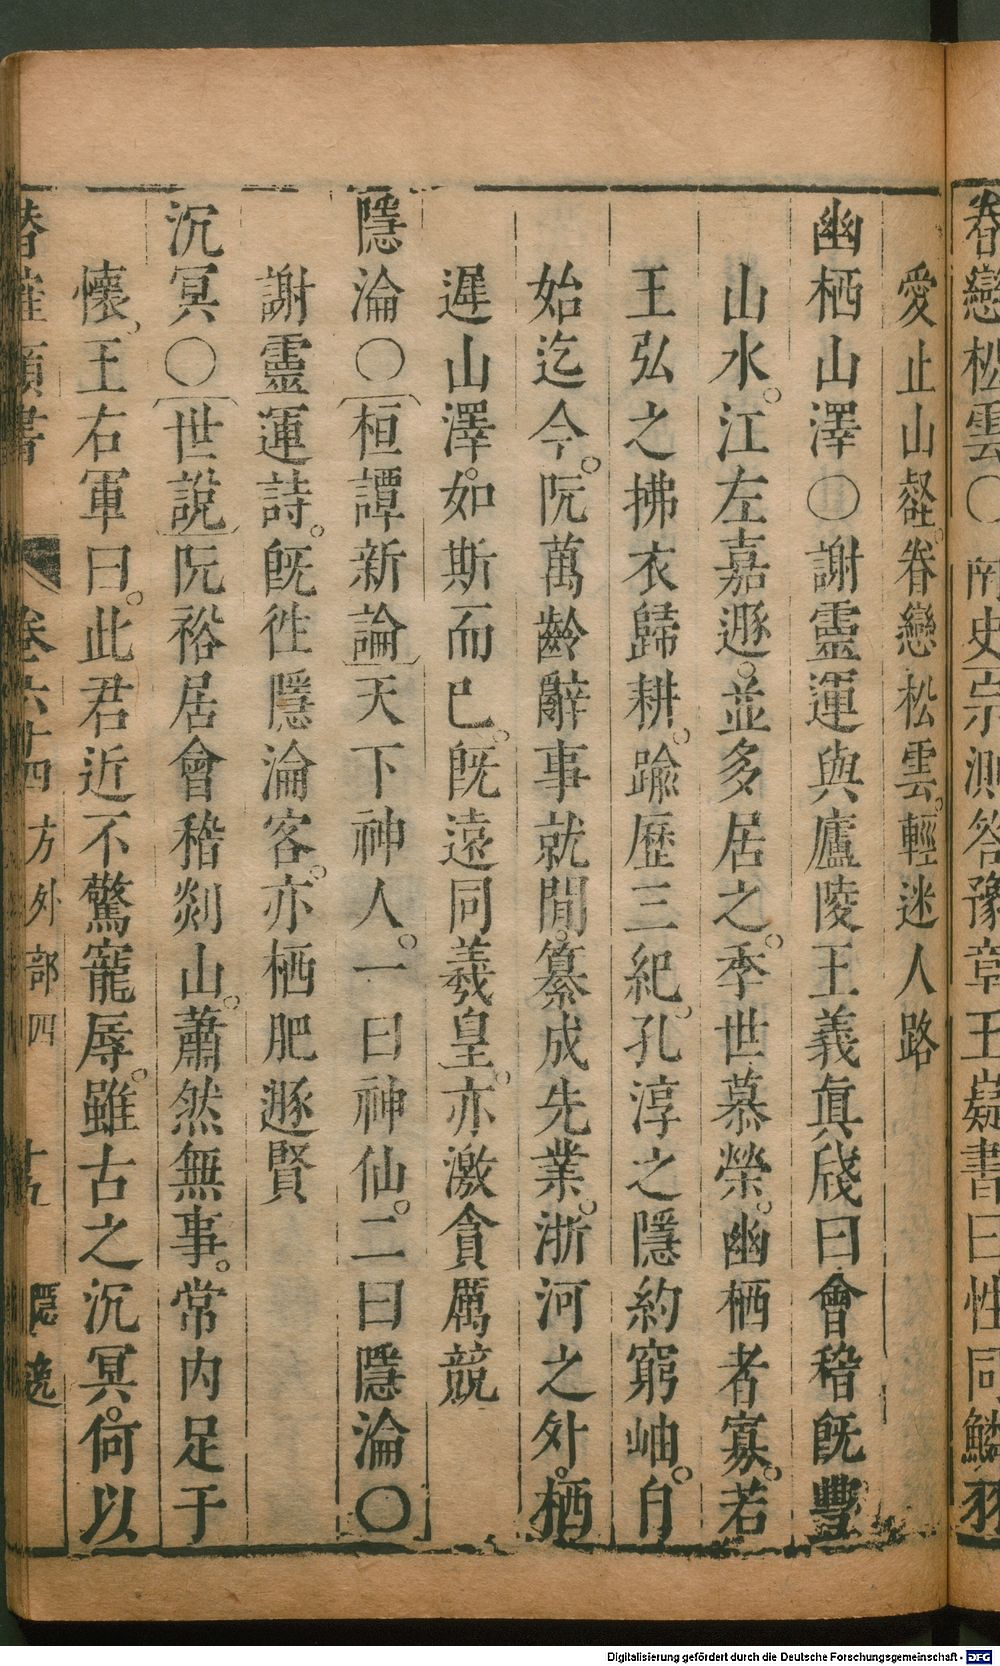 眷戀松雲○南史宗測答豫章王嶷書曰性同鱗羽
愛止山壑。眷戀松雲。輕迷人路
幽栖山澤○謝靈運與廬陵王義眞牋曰會稽旣豐
山水。江左嘉遯。並多居之。季世慕榮。幽栖者寡。若
王弘之拂衣歸耕。踰歷三紀。孔淳之隱約窮岫。自
始迄今。阮萬齡辭事就閒。纂成先業。浙河之外。栖
遲山澤。如斯而已。旣遠同羲皇。亦激貪厲競
隱淪○〔桓譚新論〕天下神人。一曰神仙。二曰隱淪○
謝靈運詩。旣徃隱淪客。亦栖肥遯賢
沉冥○〔世說〕阮裕居會稽剡山。蕭然無事。常内足于
懷。王右軍曰。此君近不驚寵辱。雖古之沉冥。何以
類書 卷六十四 方外部四 十五 隱逸
Digitalisierung gefördert durch die Deutsche Forschungsgemeinschaft - DFG